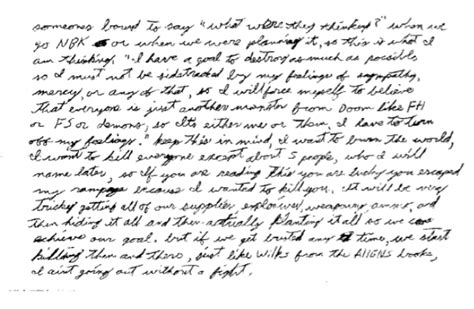 someones bound to say "what were they thinking?" when we
go NBK or when we were planning it, so this is what I
am thinking. "I have a goal to destroy as much as possible
so I must not be sidetracked by my feelings of sympathy,
mercy or any of that, so I will force myself to believe
that everyone is just another monster from Doom like FH
or FS or demons, so Its either me or them. I have to turn
off my feelings." keep this in mind, I want to burn the world,
I want to kill everyone except about 5 people, who I will
name later, so if you are reading this you are lucky you escaped
my rampage because I wanted to kill you. It will be very
tricky getting all of our supplies, explosives, weaponry, ammo, and
then hiding it all and then actually planting it all so we can
achieve our goal. but if we get busted any time, we start
killing then and there, just like Wilks from the ALIENS books,
I aint going out without a fight.